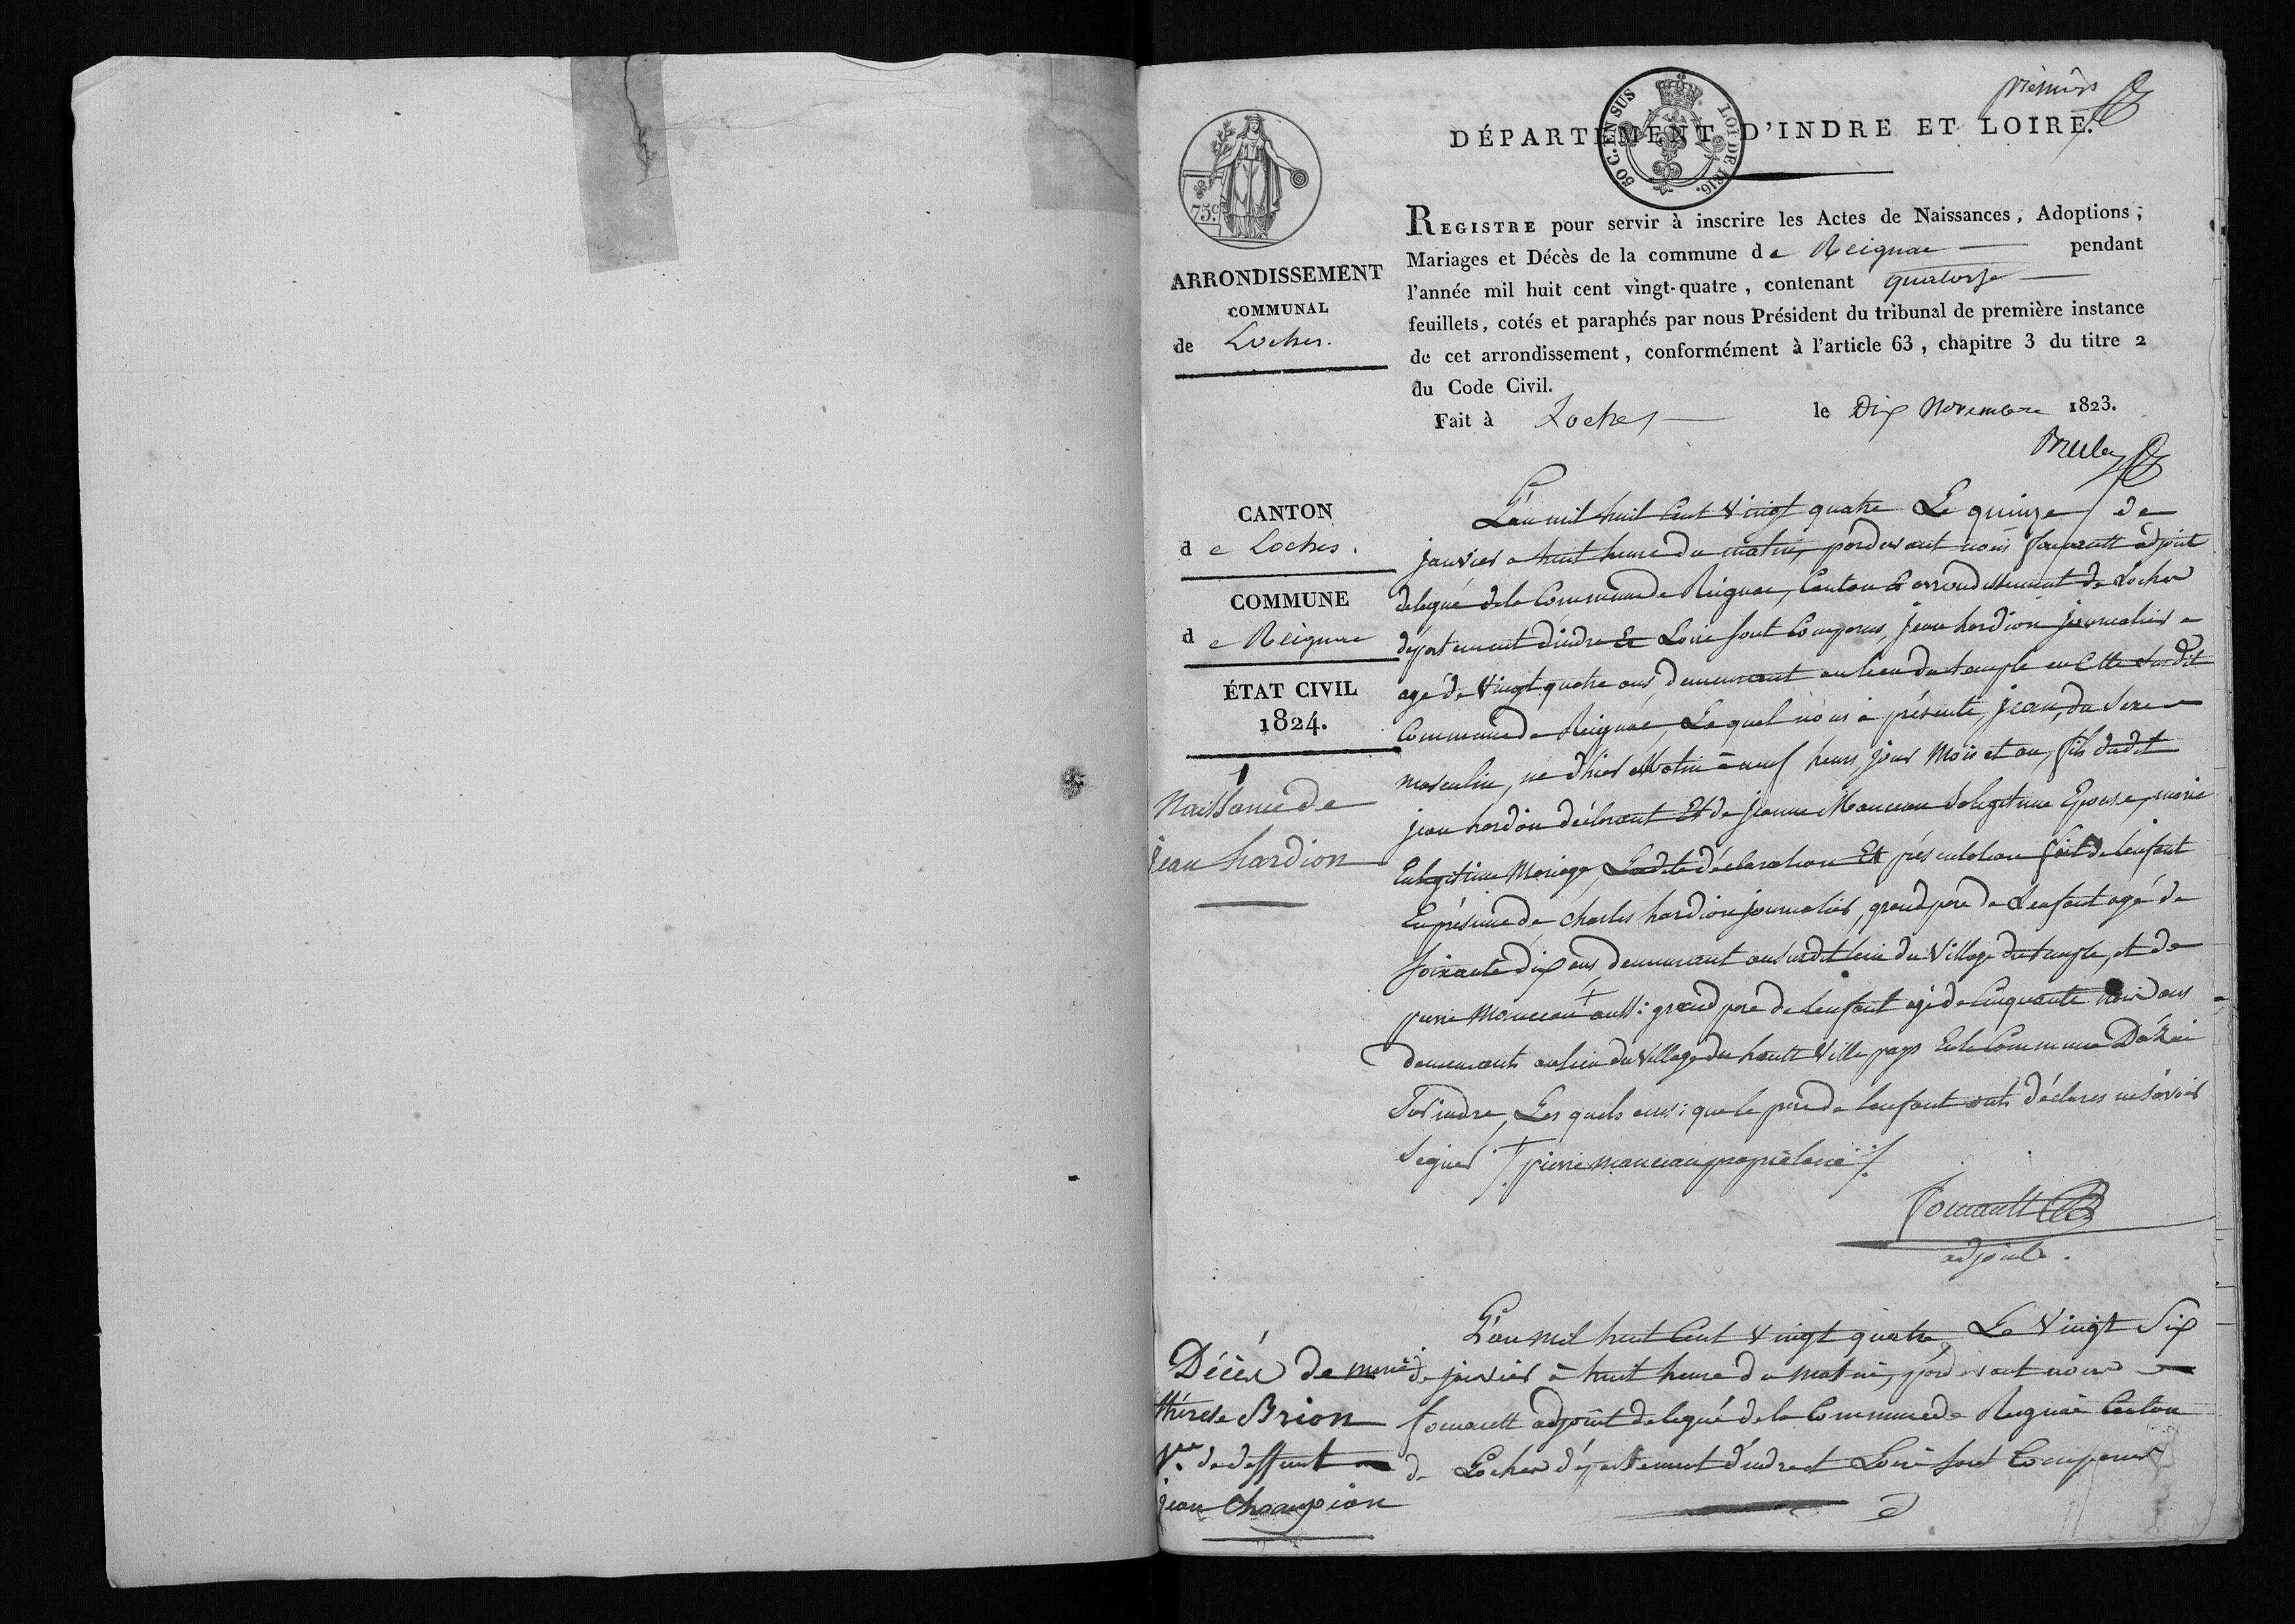 premier
DÉPARTEMENT D'INDRE ET LOIRE.
50 C. EN SUS
LOI DE 1816.
75 c.
REGISTRE pour servir à inscrire les Actes de Naissances, Adoptions,
Mariages et Décès de la commune de Reignac pendant
l'année mil huit cent vingt-quatre, contenant quatorze
feuillets, cotés et paraphés par nous Président du tribunal de première instance
de cet arrondissement, conformément à l'article 63, chapitre 3 du titre 2
du Code Civil.
Fait à Loches le Dix Novembre 1823.
ARRONDISSEMENT
COMMUNAL
de Loches.
CANTON
de Loches.
COMMUNE
de Reignac
ÉTAT CIVIL
1824.
1
Naissance de
jean hardion
L'an mil huit Cent Vingt quatre Le quinze de
janvier a huit heure du matin, pardevant nous adjoint
delegué dela Commune de Reignac, Canton Et arrondissement de Loches
département d'indre Et Loire sont Comparus, jean hardion journalier
agé de Vingt quatre ans, demeurant au lieu du temple en Cette susdit
Commune de Reignac, Lequel nous a présenté, jean, du sexe
masculin, né d'hier Matin à neuf heurs, jour Mois et an, fils dudit
jean hardion déclarant Et de jeanne Manceau Solegitime Epouse, marié
En legitime Mariage, Ladite déclaration Et présentation fait de lenfant
En présence de Charles hardion journalier, grand pere de Lenfant agé de
soixante dix ans, demeurant aususdit lieu du Village du temple, et de
pierre Manceau + aussi grand pere de lenfant agé de Cinquante ans
demeurants aulieu du Village du hautt Ville pays Ede Commune Dázai
Sur indre, Les quels aussi que le pere de lenfant onts déclares ne savoir
Signer + pierre manceau propriétaire
adjoint.
Décès de marie
thérese Brion
Ve. de deffunt
jean Champion
L'an mil huit Cent Vingt quatre, Le Vingt Six
de janvier à huit heure du matin, pardevant nous
adjoint delegué dela Commune de Reignac Canton
de Loches département d'indre et Loire sont Comparus